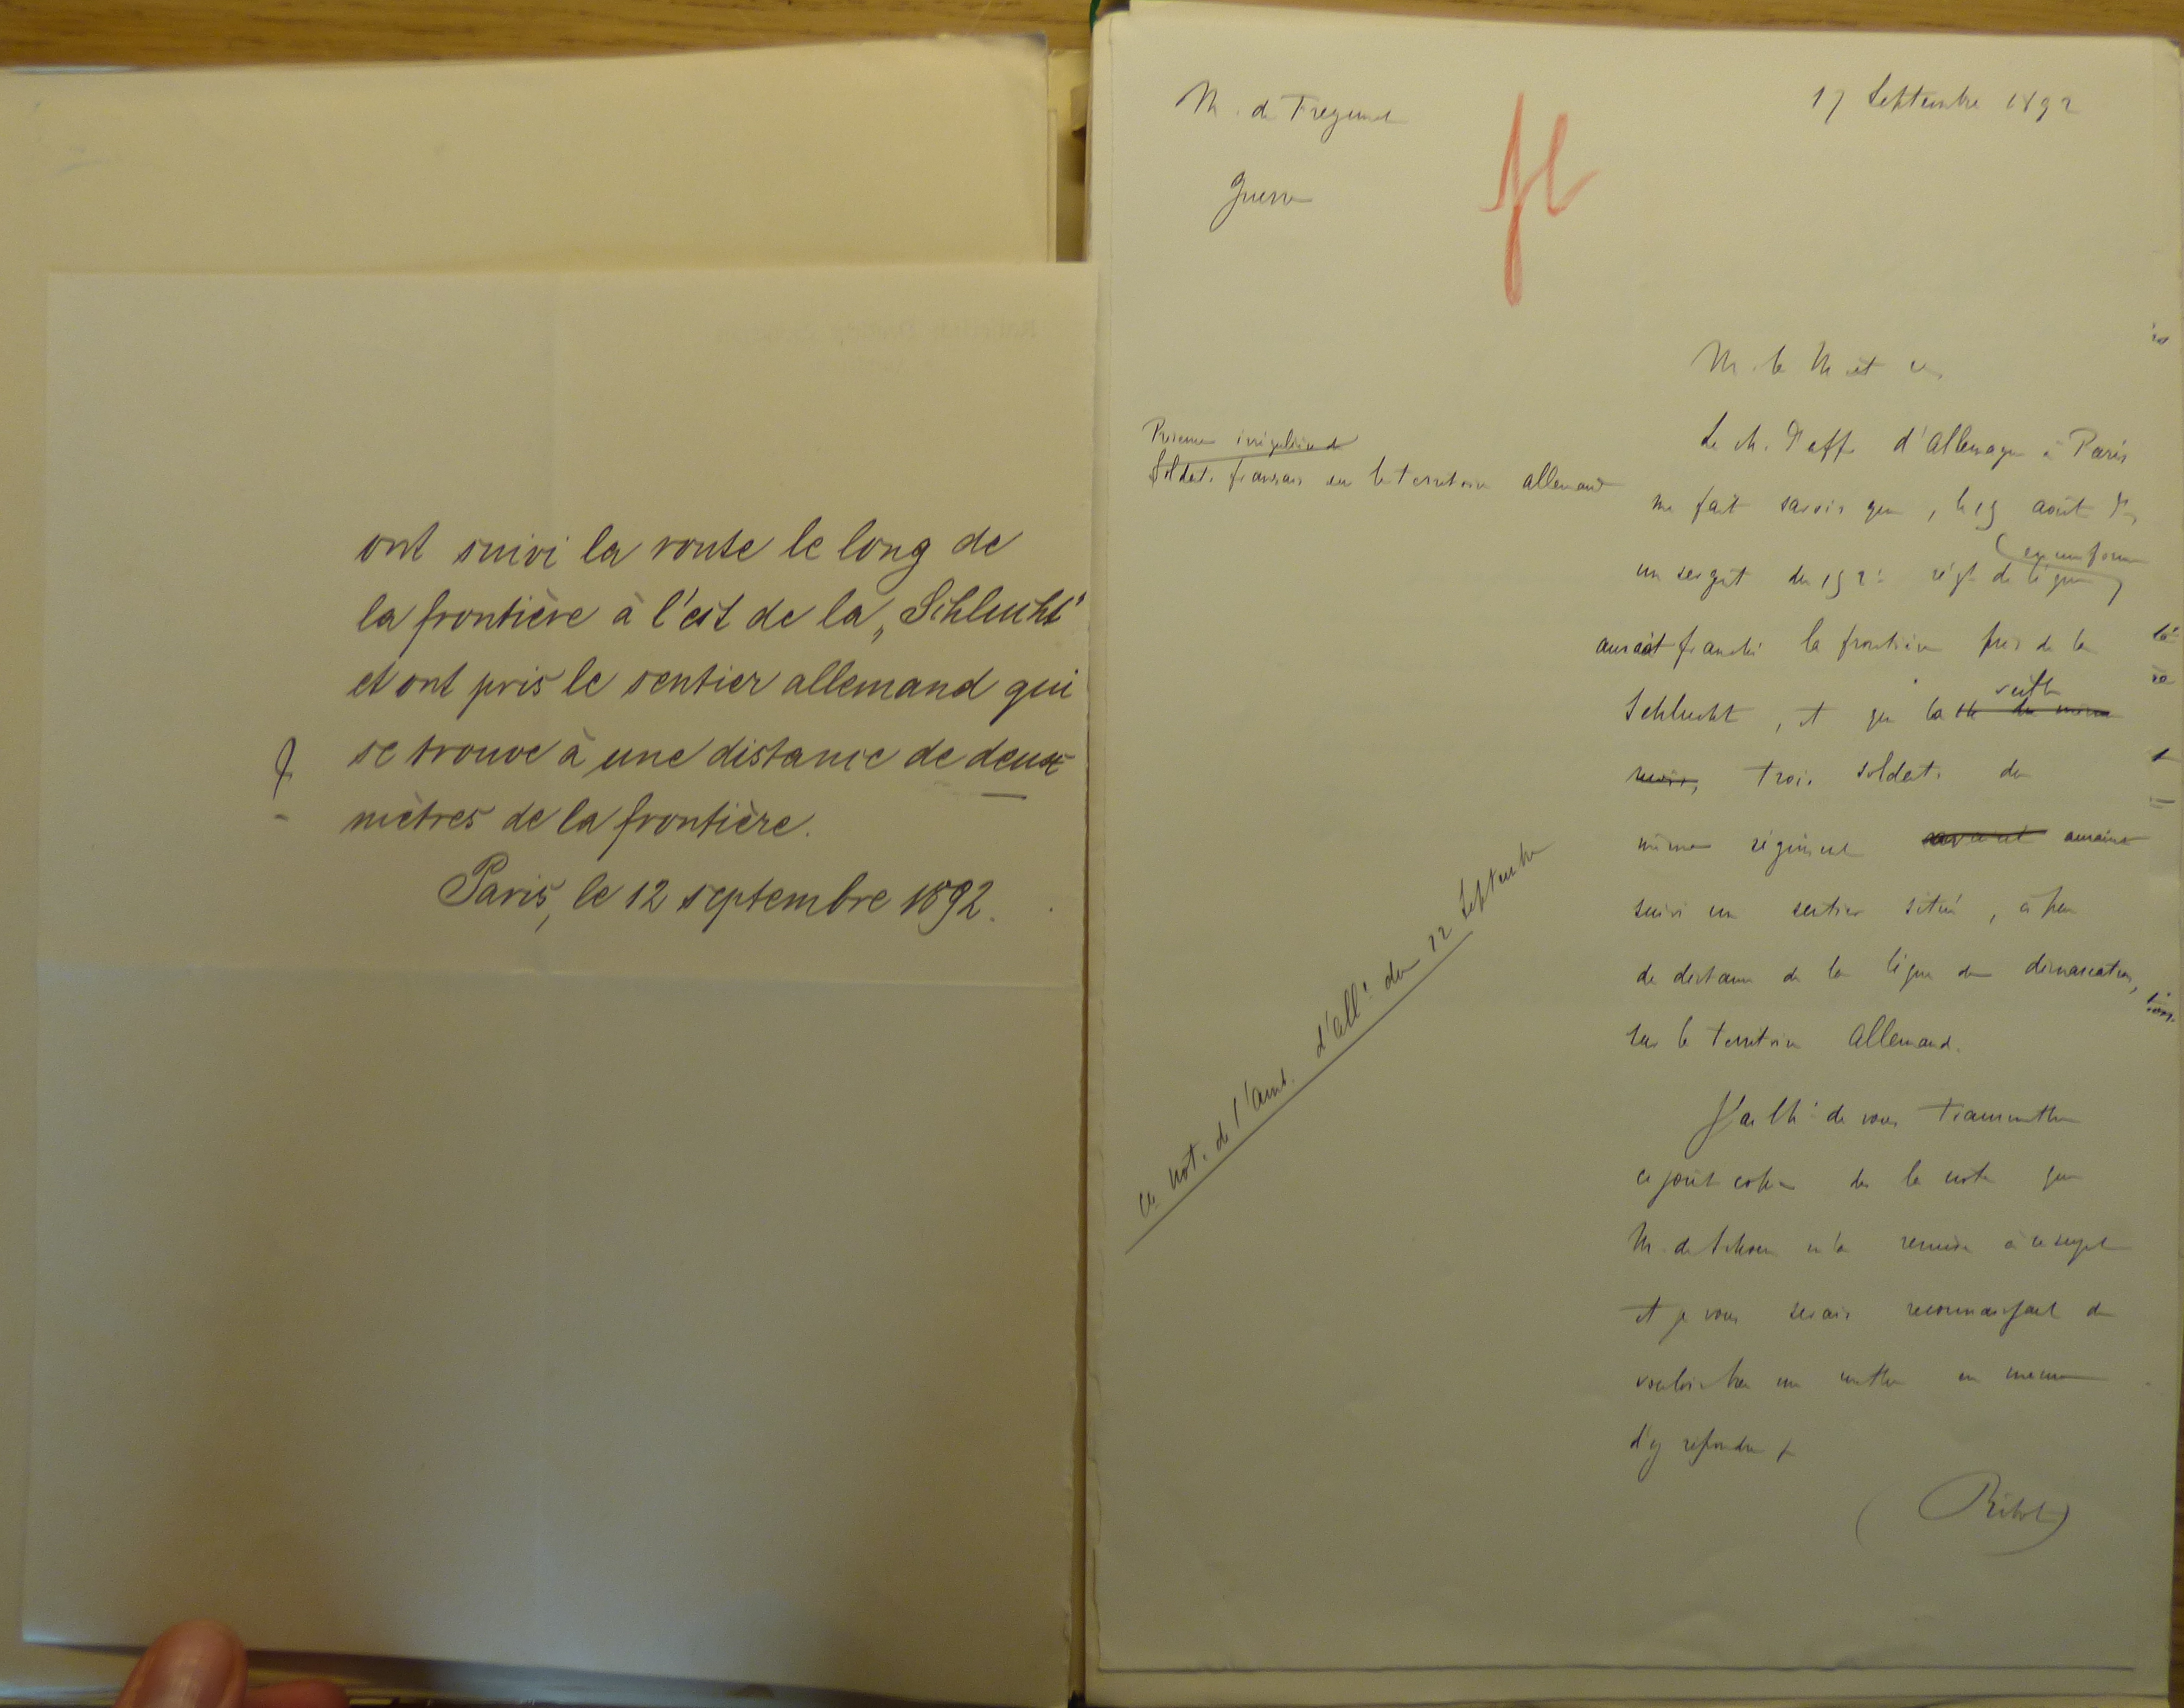 ont suivi la route le long de
la frontière à l'est de la „Schlucht"
et ont pris le sentier allemand qui
se trouve à une distance de deux
mètres de la frontière.
Paris, le 12 septembre 1892.
M. de Freycinet
17 Septembre 1892
Guerre
M. le M et
Présence irrégulière de
Soldats français sur le territoire allemand
Le ch. d'aff. d'Allemagne à Paris
me fait savoir que, le 19 août dr,
(en uniforme)
un sergent du 152e régt de ligne
aurait franchi la frontière près de la
veille
Schlucht, et que la
mois, trois soldats du
même régiment avaient auraient
suivi un sentier situé, à peu
de distance de la ligne de démarcation,
sur le territoire allemand.
J'ai l'h. de vous transmettre
ci joint copie de la note que
M. de Schoen m'a remise à ce sujet
et je vous serais reconnaissant de
vouloir bien me mettre en mesure
d'y répondre
(Ribot)
not. de l'Amb. d'Alle du 12 Septembre